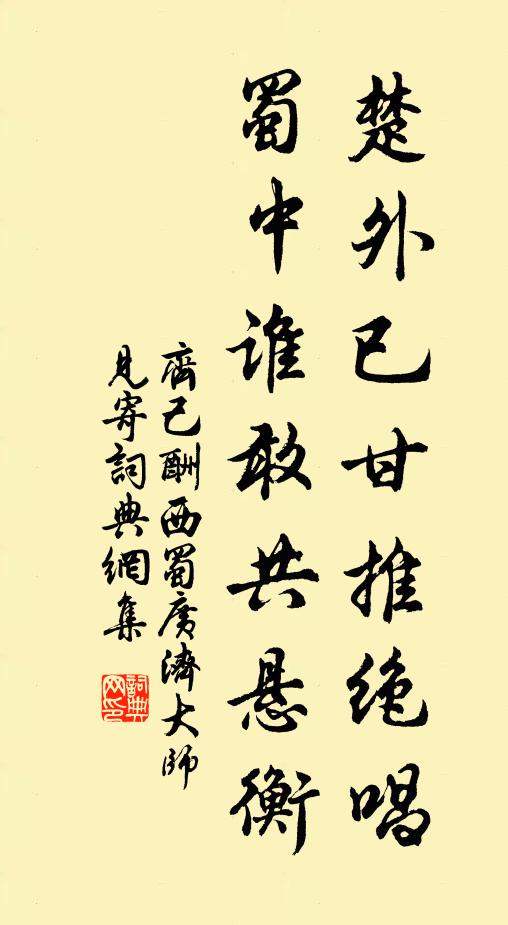 楚外已甘推绝唱
蜀中谁敢共悬衡
齊己酬西蜀廣濟大師
見寄詞典網集
詞典
网印